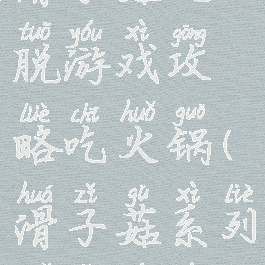 tuō yóu xì gōng
脱游戏攻
lüè chī huǒ guō
略吃火锅(
huá zǐ gū xì liè
滑子菇系列